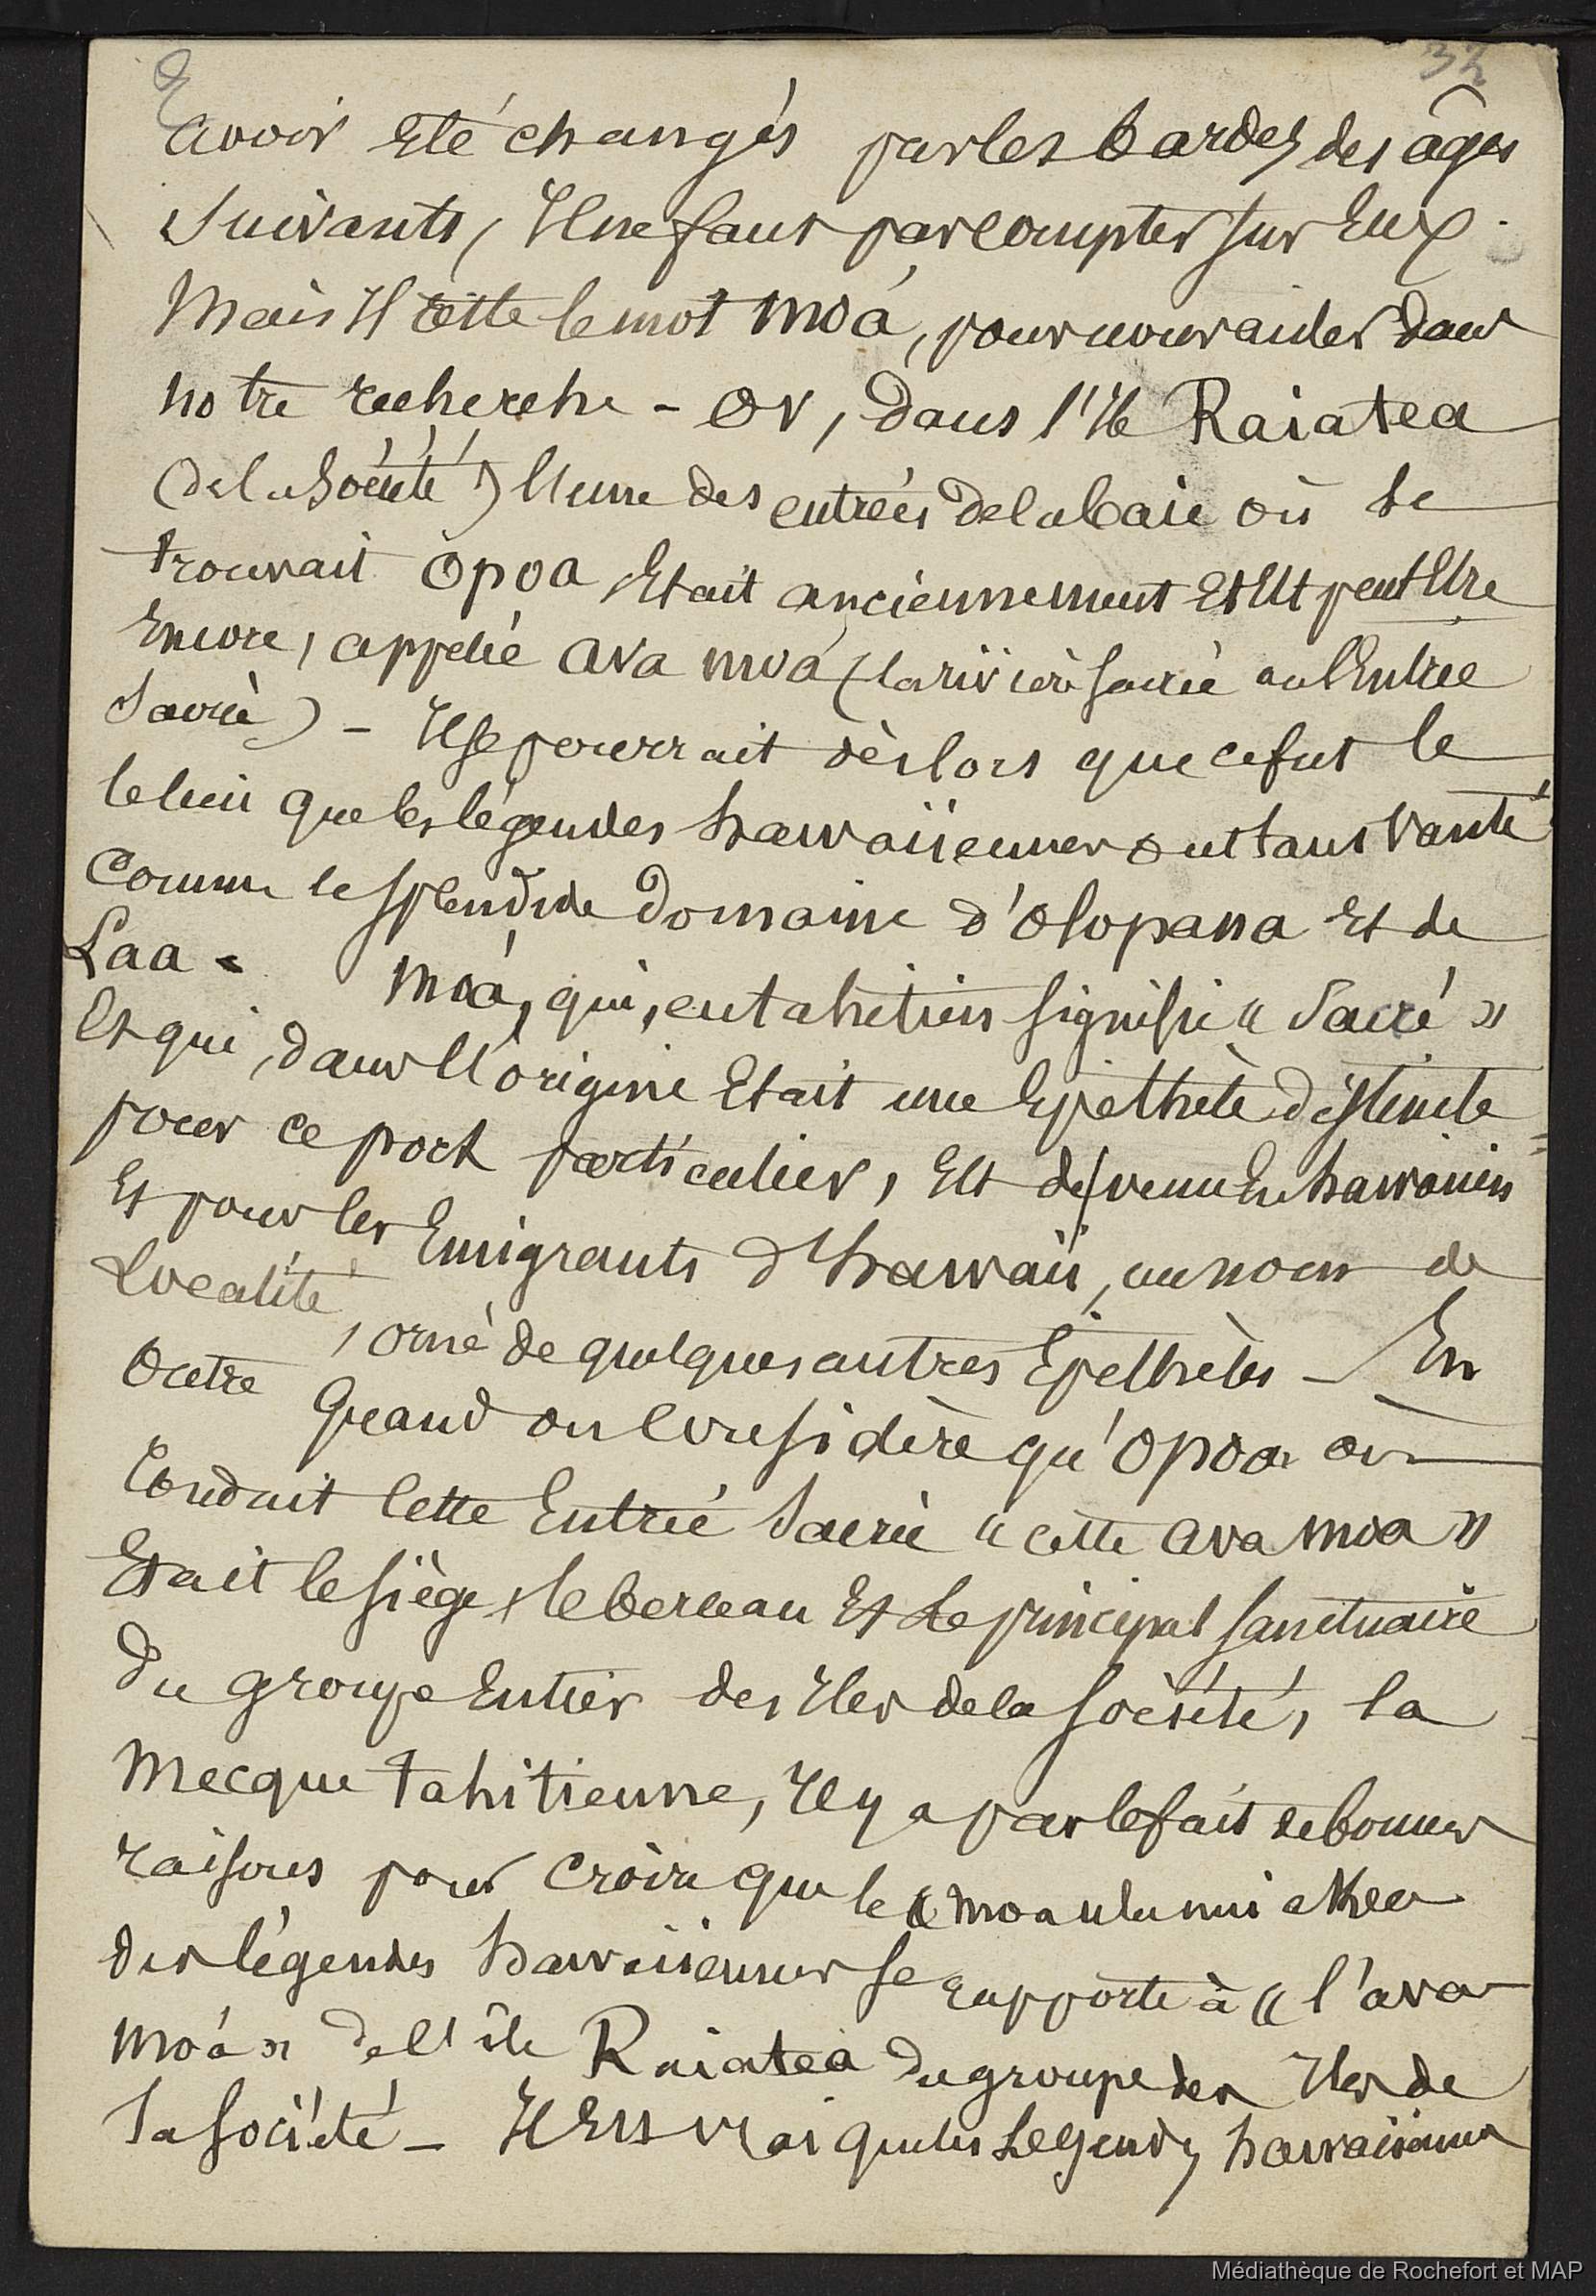 32
avoir Eté changés par les bardes des âges
Suivants, Il ne faut pas compter sur Eux.
Mais Il reste le mot Moá, pour nous aider dans
notre recherche - Or, dans l'Ile Raiatea
(de la Société) l'une des entrées de la baie où se
trouvait Opoa Etait anciennement Et Est peut Etre
Encore, appelée ava moá (la rivière sacrée ou l'Entrée
Sacrée) - Il se pourrait dès lors que ce fut le
le lieu que les légendes hawaiiennes ont tant Vanté
Comme le splendide Domaine d'Olopana Et de
Laa - Moá, qui, en tahitien signifie « Sacré »
Et qui, dans l'origine Etait une Epithète distincte
pour ce port particulier, Est devenu En hawaiien
Et pour les Emigrants d'hawaii, un nom de
Localité, orné de quelques autres Epithètes - En
Outre Quand on Considère qu'Opoa où
Conduit Cette Entrée Sacrée « cette ava moa »
Etait le siège, le berceau Et Le principal sanctuaire
Du groupe Entier des Iles de la Société, la
Mecque tahitienne, Il y a par le fait de bonnes
raisons pour croire que le « moaulanui akea
des légendes hawaiiennes se rapporte à « l'ava
moá » de l'île Raiatea du groupe des Iles de
la Société - Il Est Vrai que les Légendes hawaiiennes
Médiathèque de Rochefort et MAP